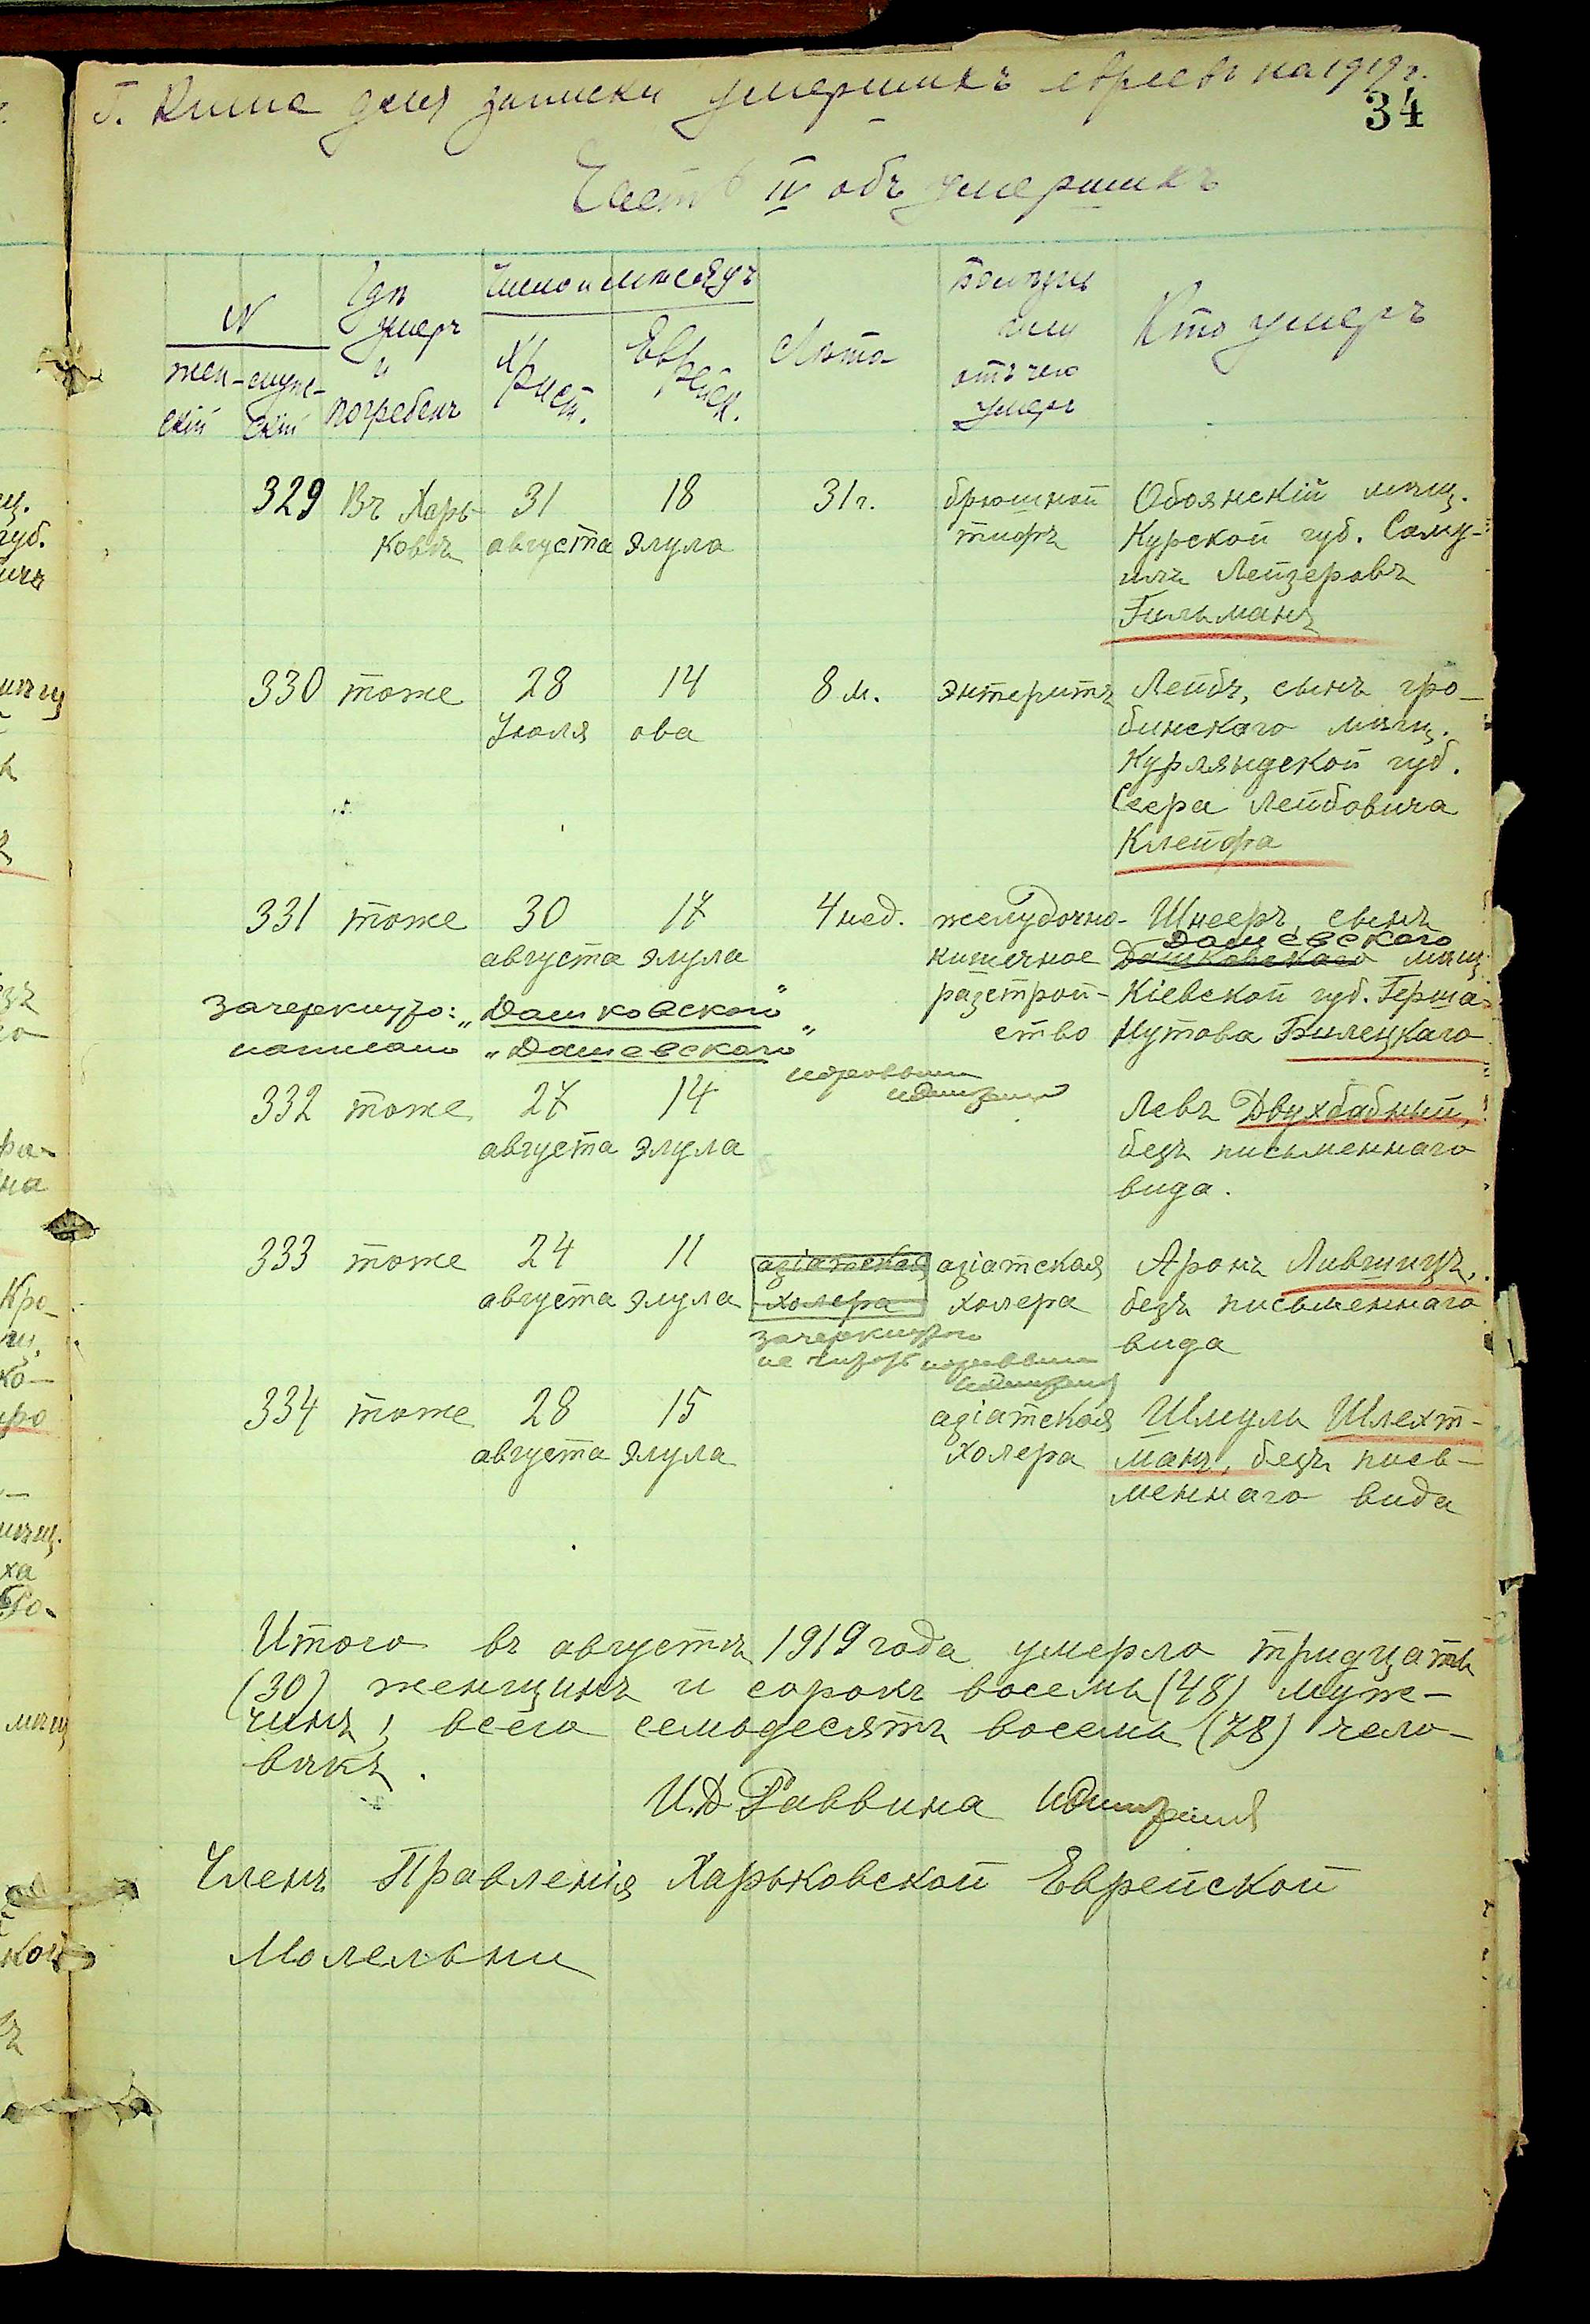 для записки умершихъ евреевъ на 1919 г.
34
Часть IV объ умершихъ
№
жен-
скій
муж-
скій
Гдѣ
умеръ
и
погребенъ
Число и мѣсяцъ
Христ.
Еврейск.
Лѣта
Болѣзнь
или
отъ чего
умеръ
Кто умеръ
329 Въ Харь- 31 18 31 г. брюшной Обоянскій мѣщ.
ковѣ августа элула тифъ Курской губ. Саму-
илъ Лейзеровъ
Гильманъ
330 тоже 28 14 8 м. энтеритъ Лейбъ, сынъ гро-
Іюля ава бинскаго мѣщ.
Курляндской губ.
Сеера Лейбовича
Клейфа
331 тоже 30 17 4 нед. желудочно- Шнееръ, сынъ
Дашевскаго
августа элула кишечное Дашковскаго мѣщ.
разстрой- Кіевской губ. Герша
ство Мутова Билецкаго
Зачеркнуто: „Дашковской"
написано „Дашевскаго"
332 тоже 27 14 Левъ Двухбабный,
августа элула безъ письменнаго
вида.
333 тоже 24 11 азіатская азіатская Аронъ Лившицъ,
августа элула холера холера безъ письменнаго
зачеркнутое вида
не читать
334 тоже 28 15 азіатская Шмуль Шлехт-
августа элула холера манъ, безъ пись-
меннаго вида
Итого въ августѣ 1919 года умерло тридцать
(30) женщинъ и сорокъ восемь (48) муж-
чинъ; всего семьдесятъ восемь (78) чело-
вѣкъ.
И.Д. Раввина
Членъ Правленія Харьковской Еврейской
Молельни